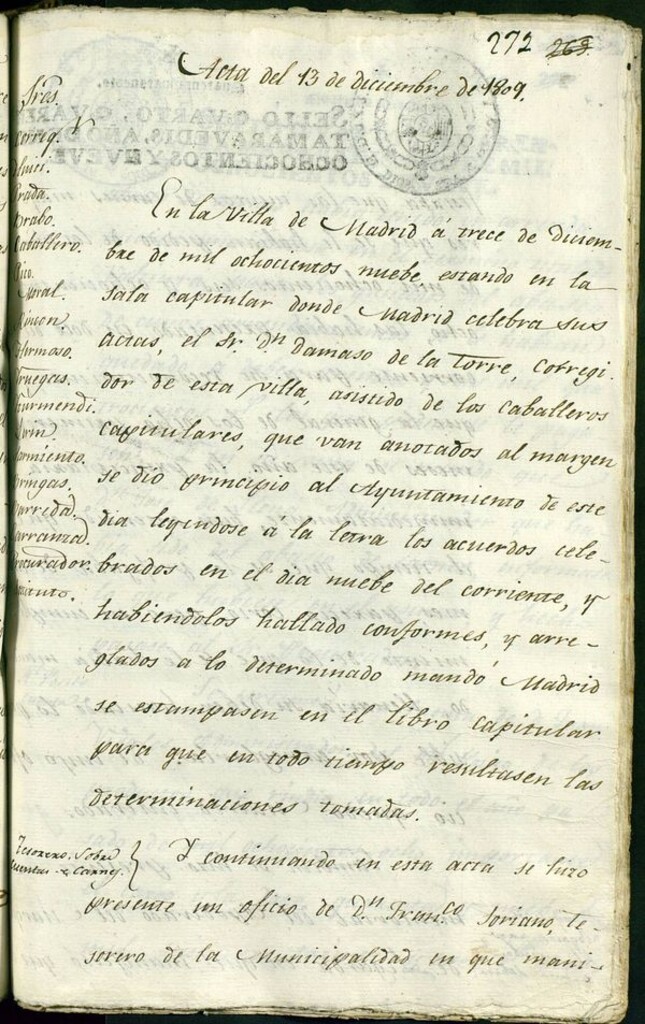 272 269.
Acta del 13 de diciembre de 1809.
SELLO QVARTO, QVARE
TA MARAVEDIS, AÑO D
OCHOCIENTOS Y NUEVE
Sres.
Correg.r
rada.
rabo.
aballero.
Moral.
incon.
ermoso.
ruegas.
urmendi.
armiento.
ringas.
arreda.
arranza.
rocurador.
En la Villa de Madrid á trece de diciem-
bre de mil ochocientos nuebe estando en la
sala capitular donde Madrid celebra sus
actas, el Sr. Dn Damaso de la Torre, Corregi-
dor de esta villa, asistido de los caballeros
capitulares, que van anotados al margen
se dio principio al Ayuntamiento de este
dia leyendose a la letra los acuerdos cele-
brados en el dia nuebe del corriente, y
habiendolos hallado conformes, y arre-
glados a lo determinado mandó Madrid
se estampasen en el libro capitular
para que en todo tiempo resultasen las
determinaciones tomadas.
Tesorero. Sobre
Cuentas de Carnes.
Y continuando en esta acta se hizo
presente un oficio de Dn Fran.co Soriano, te-
sorero de la Municipalidad en que mani-